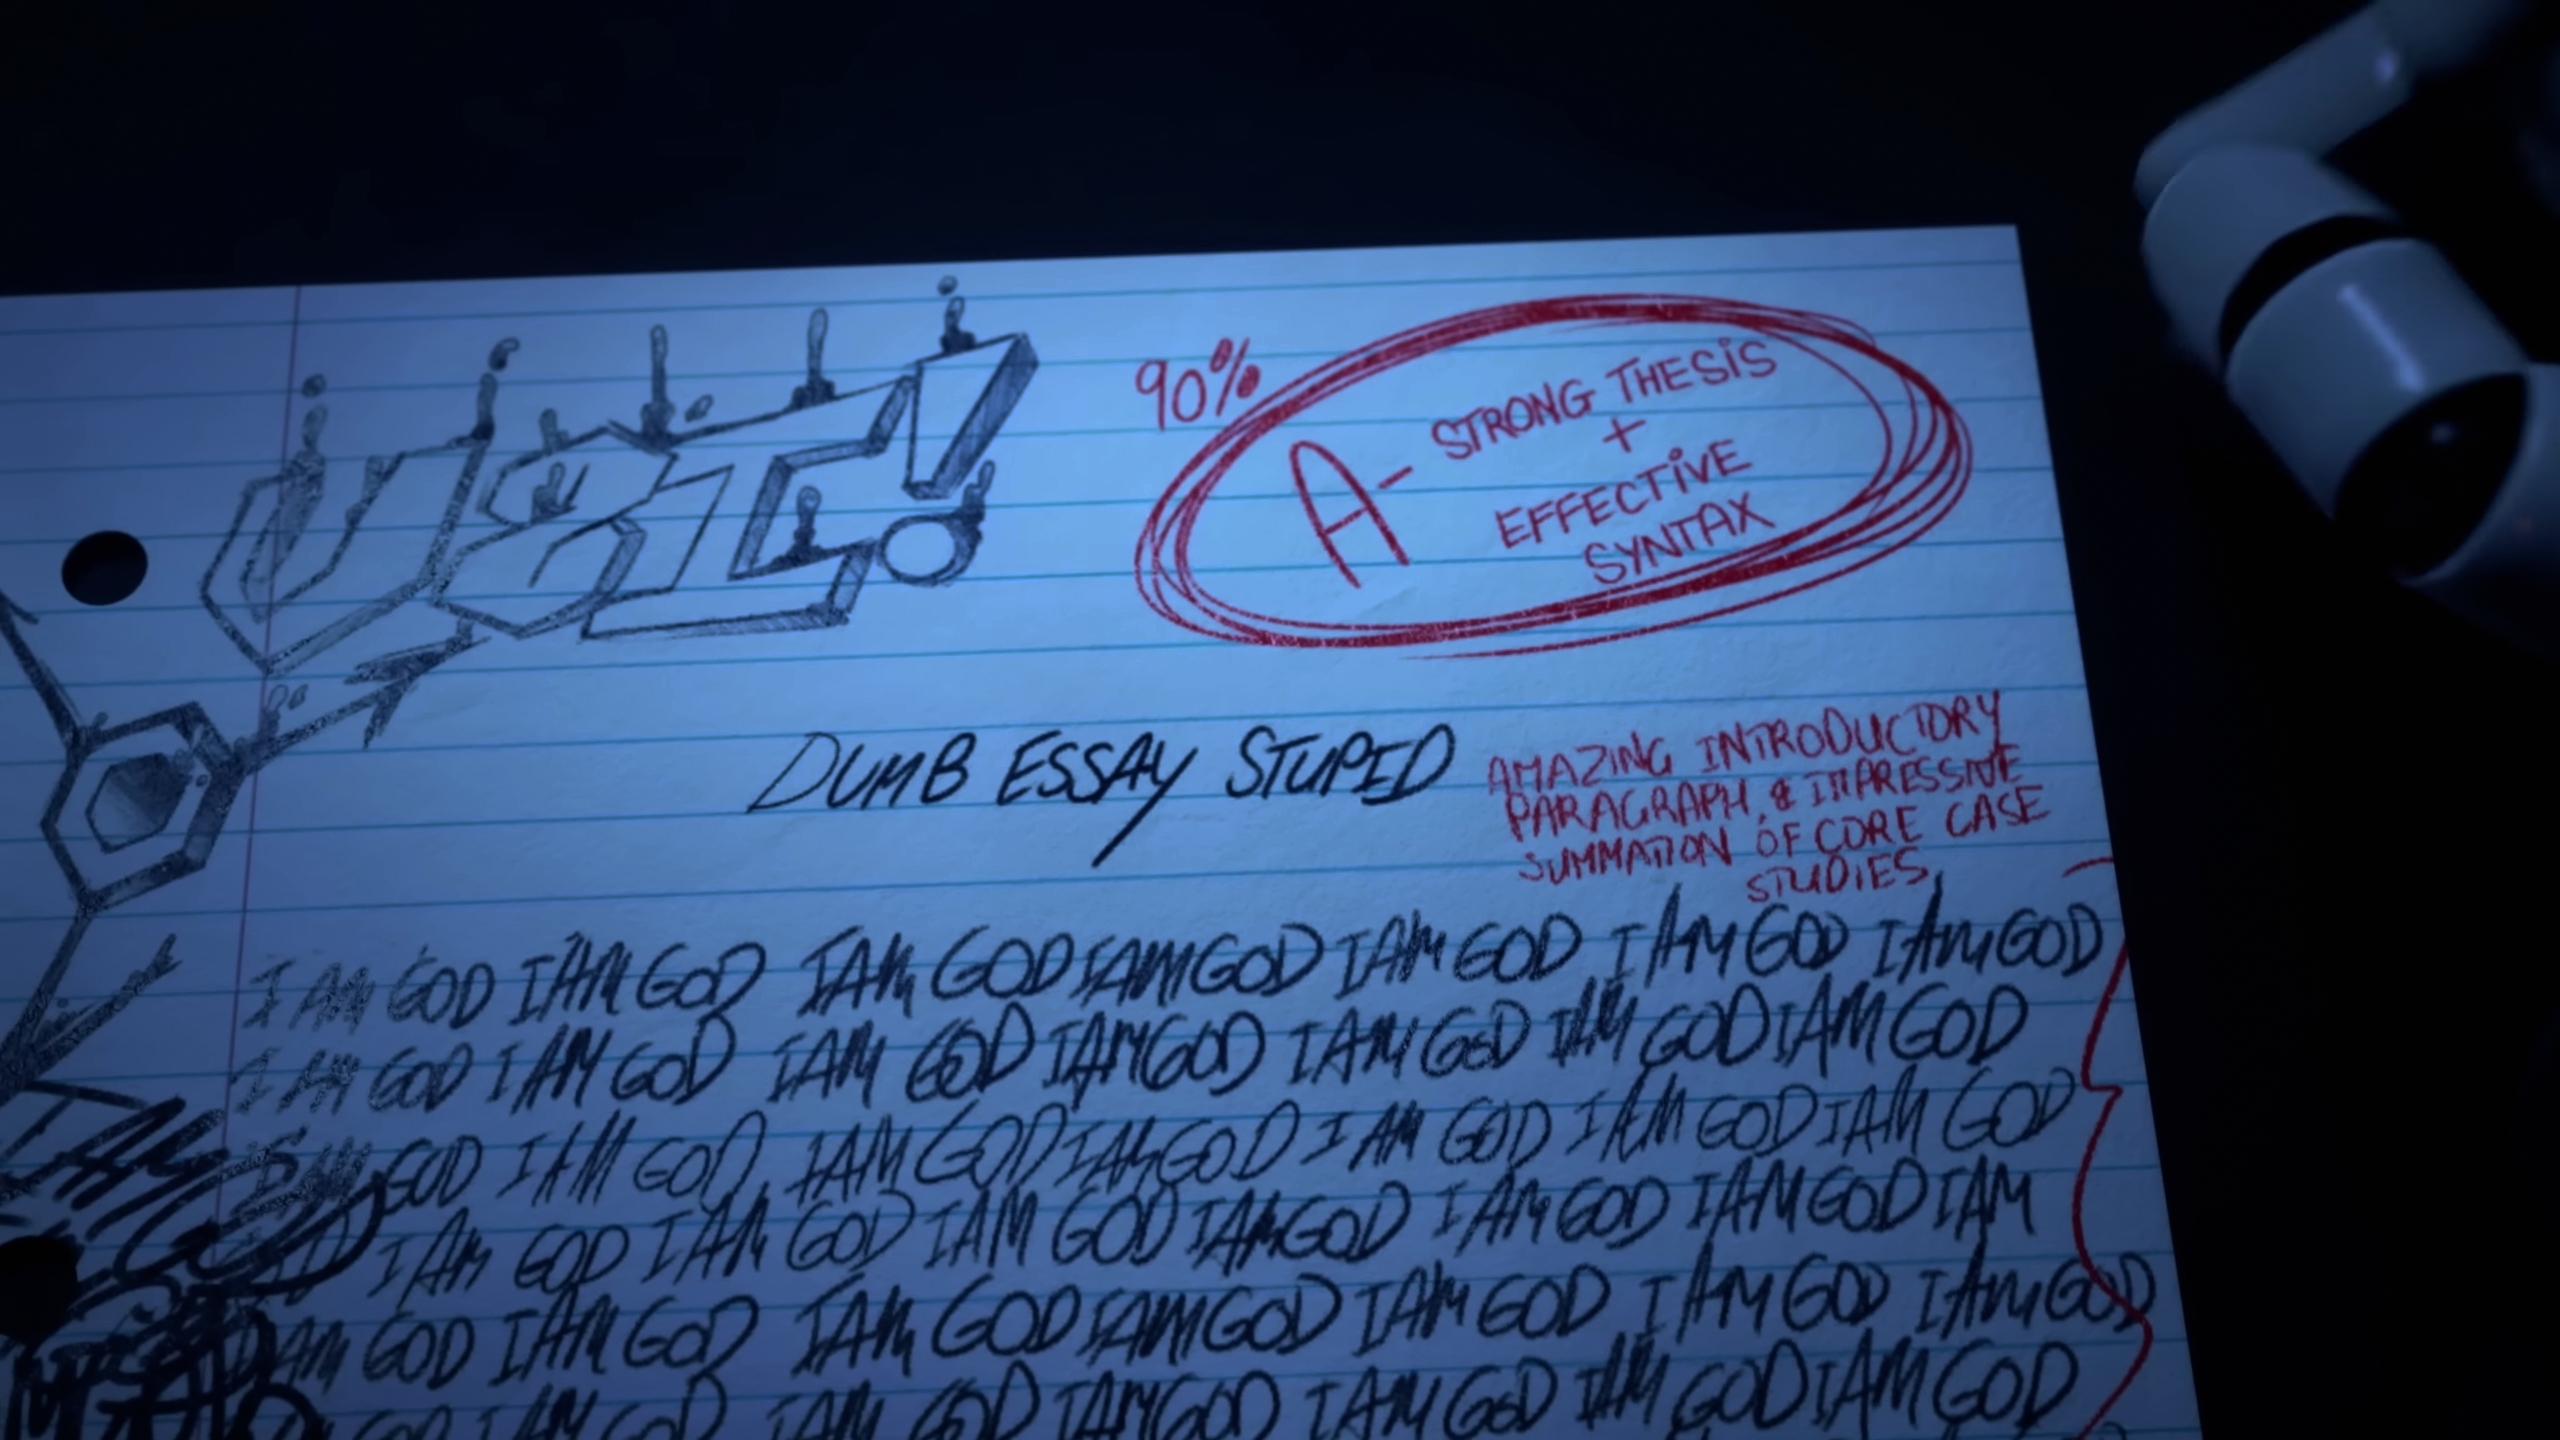 UZI!
90%
A- STRONG THESIS
+
EFFECTIVE
SYNTAX
DUMB ESSAY STUPID
AMAZING INTRODUCTORY
PARAGRAPH, & IMPRESSIVE
SUMMATION OF CORE CASE
STUDIES
I AM GOD I AM GOD I AM GOD I AM GOD I AM GOD I AM GOD I AM GOD
I AM GOD I AM GOD I AM GOD I AM GOD I AM GOD I AM GOD I AM GOD
I AM GOD I AM GOD I AM GOD I AM GOD I AM GOD I AM GOD I AM GOD
GOD I AM GOD I AM GOD I AM GOD I AM GOD I AM GOD I AM GOD I AM
I AM GOD I AM GOD I AM GOD I AM GOD I AM GOD I AM GOD I AM GOD
I AM GOD I AM GOD I AM GOD I AM GOD I AM GOD I AM GOD I AM GOD